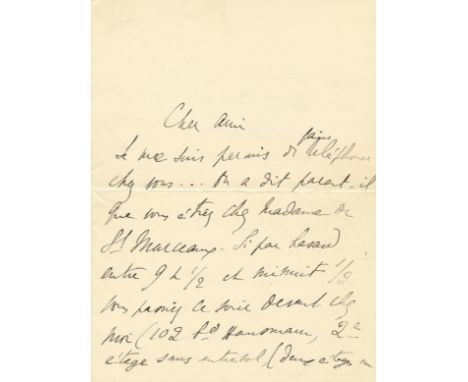 Cher ami
faire
Je me suis permis de téléphoner
chez vous... On a dit paraît-il
que vous étiez chez Madame de
St Marceaux. Si par hasard
entre 9 h 1/2 et minuit 1/2
vous passiez ce soir devant chez
moi (102 Bd Haussmann, 2e
étage sans entresol, (deux étages au